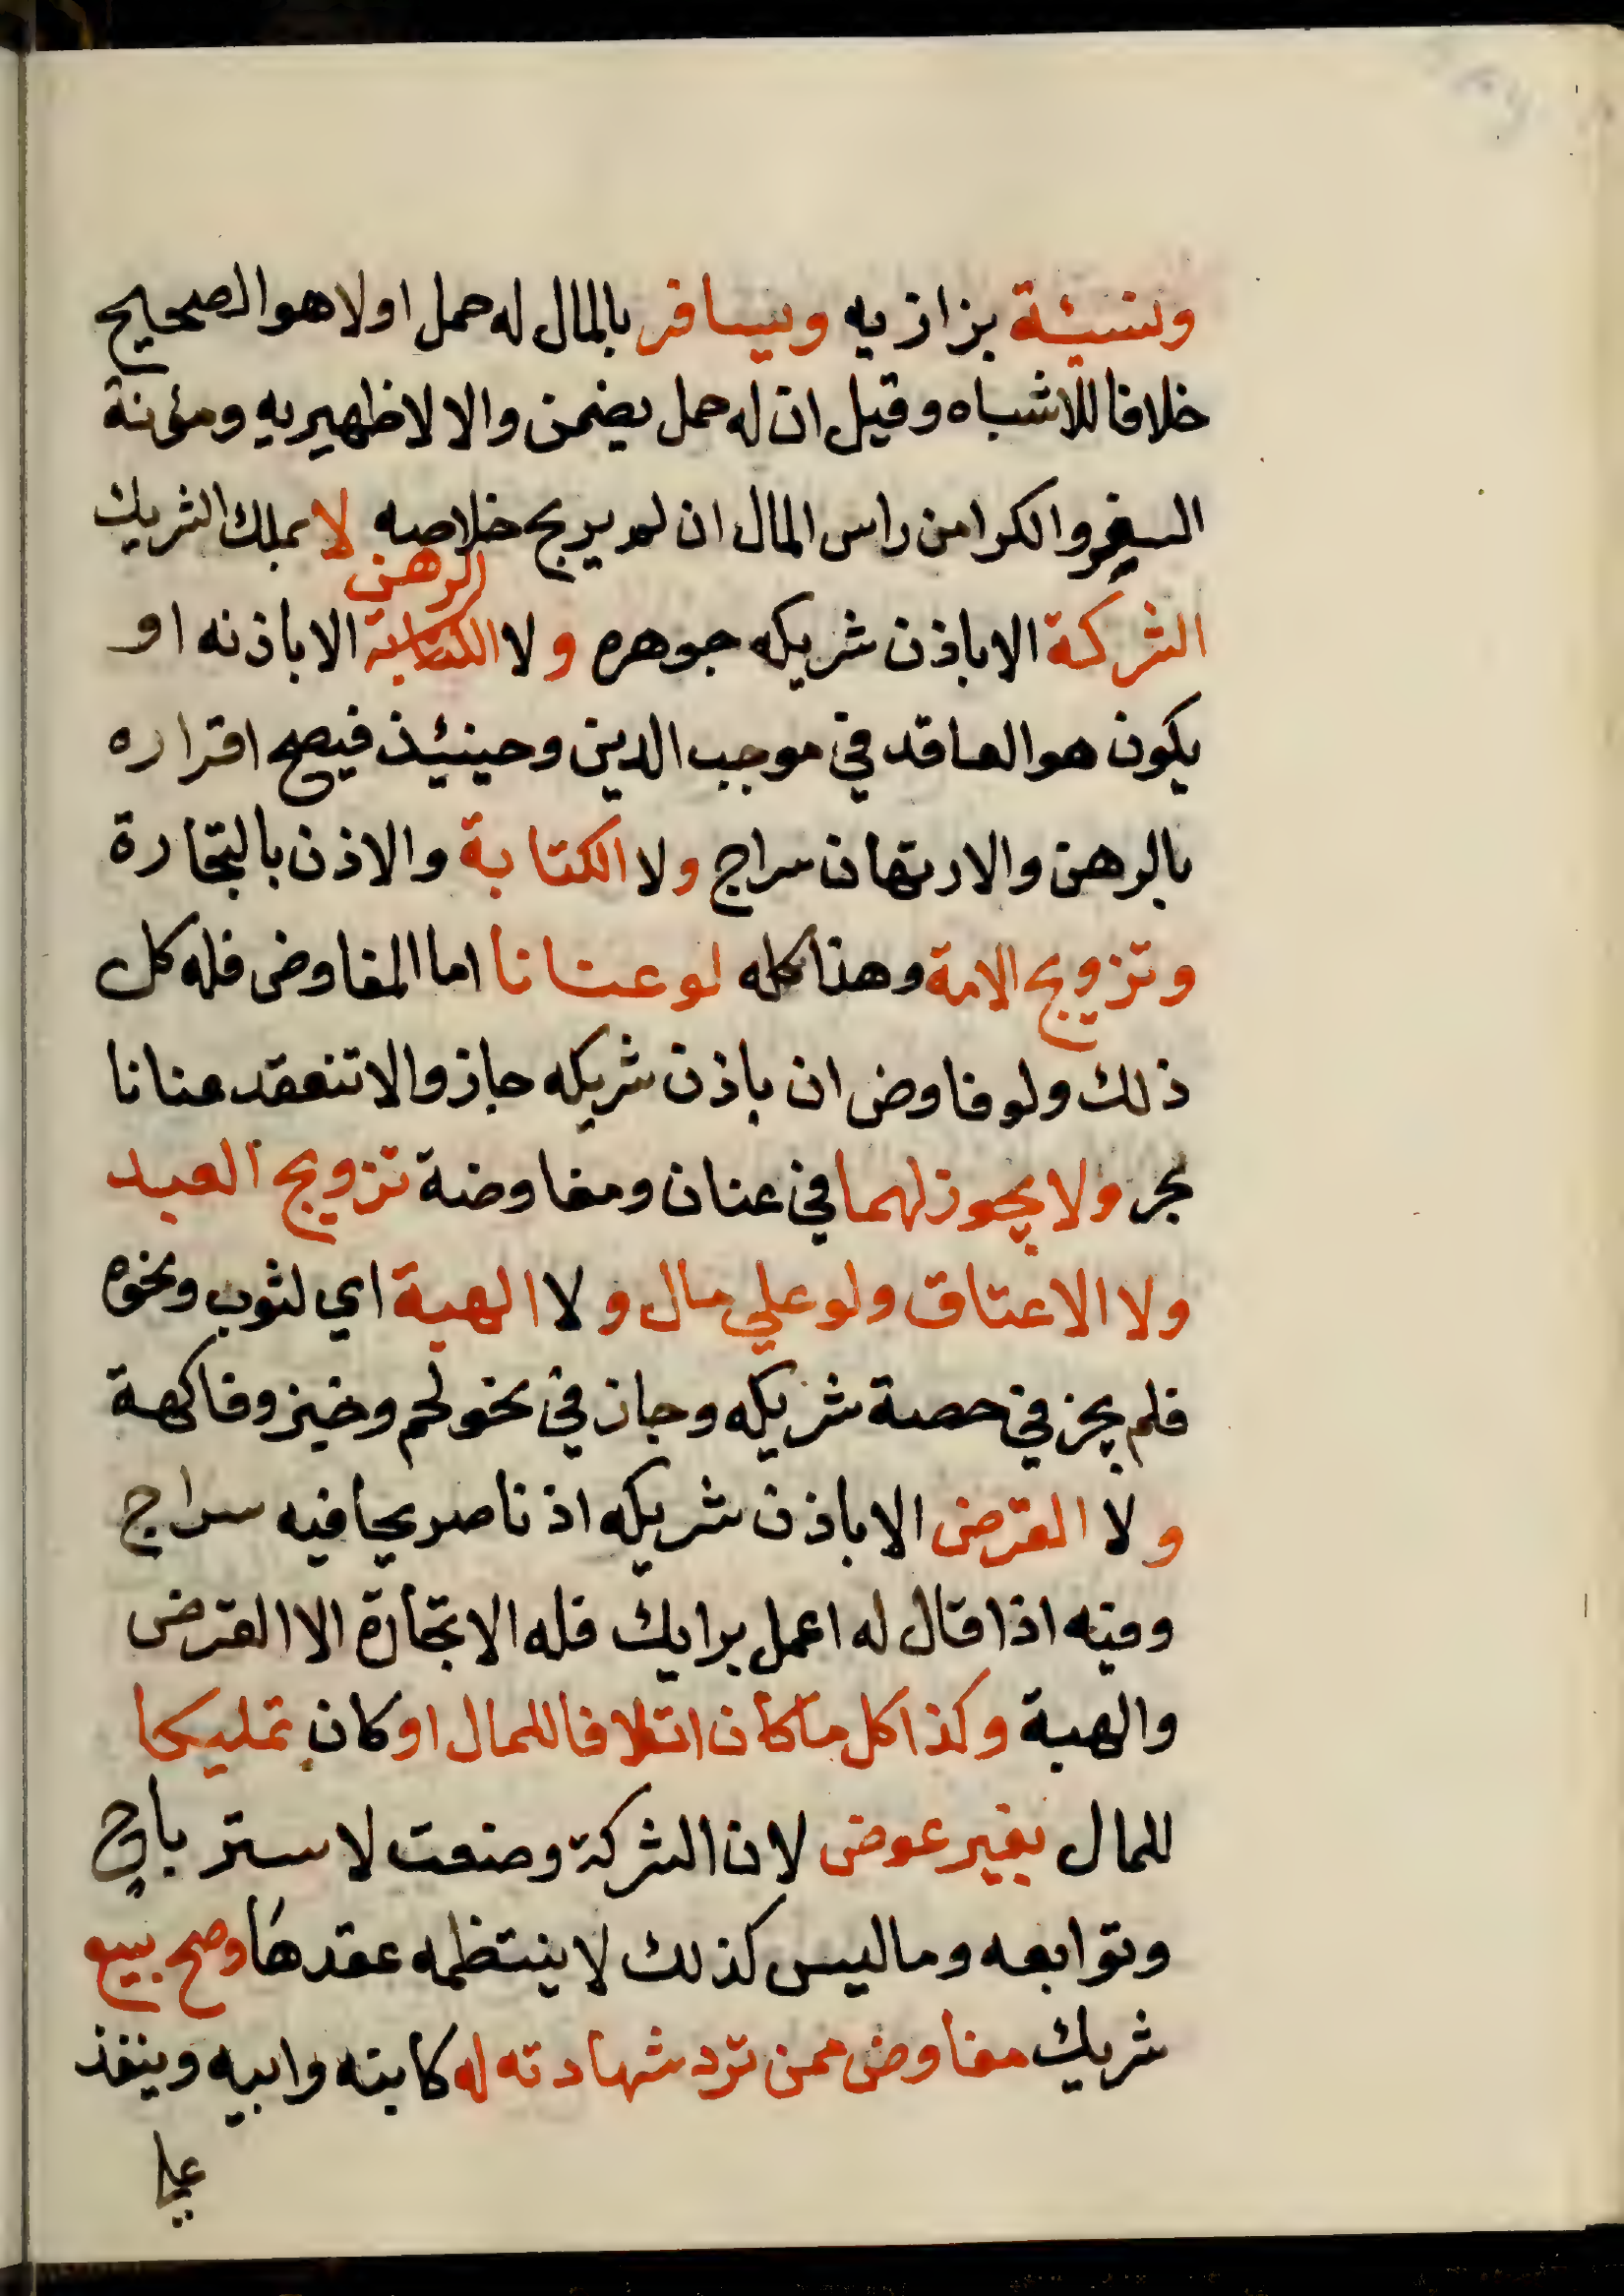 ونسيئة بزازيه ويسافر بالمال له حمل اولا هو الصحيح
خلافا للاشباه وقيل ان له حمل يضمن والا لا ظهيريه ومؤنة
السفر والكرا من راس المال ان لم يربح خلاصه لا يملك الشريك
الرهن
الشركة الا باذن شريكه جوهره ولا الكتابة الا باذنه او
يكون هو العاقد في موجب الدين وحينئذ فيصح اقراره
بالرهن والارتهان سراج ولا الكتابة والاذن بالتجارة
وتزويج الامة وهذا كله لو عنانا اما المفاوض فله كل
ذلك ولو فاوض ان باذن شريكه جاز والا تنعقد عنانا
بحر ولا يجوز لهما في عنان ومفاوضة تزويج العبد
ولا الاعتاق ولو علي مال ولا الهبة اي لثوب ونحوه
فلم يجز في حصة شريكه وجاز في نحو لحم وخبز وفاكهة
ولا القرض الا باذن شريكه اذنا صريحا فيه سراج
وفيه اذا قال له اعمل برايك فله الا تجارة الا القرض
والهبة وكذا كل ما كان اتلافا للمال او كان تمليكا
للمال بغير عوض لان الشركة وضعت لاسترباح
وتوابعه وما ليس كذلك لا ينتظمه عقدها وصح بيع
شريك مفاوض ممن ترد شهادته له كابنه وابيه وينفذ
علي